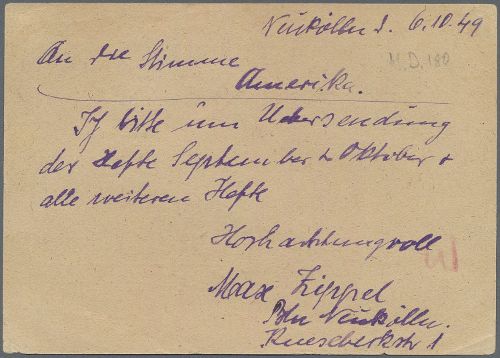 Neukölln d. 6.10.49
M.D. 180
An die Stimme
Amerika.
Ich bitte um Übersendung
der Hefte September & Oktober &
alle weiteren Hefte
Hochachtungsvoll
Max Zippel
Bln Neukölln.
1